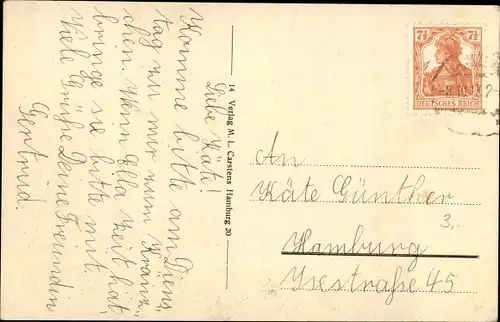 Liebe Käte!
Komme bitte am Diens
tag zu mir zum Kränz-
chen. Wenn Ella Zeit hat,
bringe sie bitte mit.
Viele Grüße Deine Freundin
Gertrud.
14 Verlag M. L. Carstens Hamburg 20
7½ 7½
DEUTSCHES REICH
An
Käte Günther
3,
Hamburg
Isestraße 45